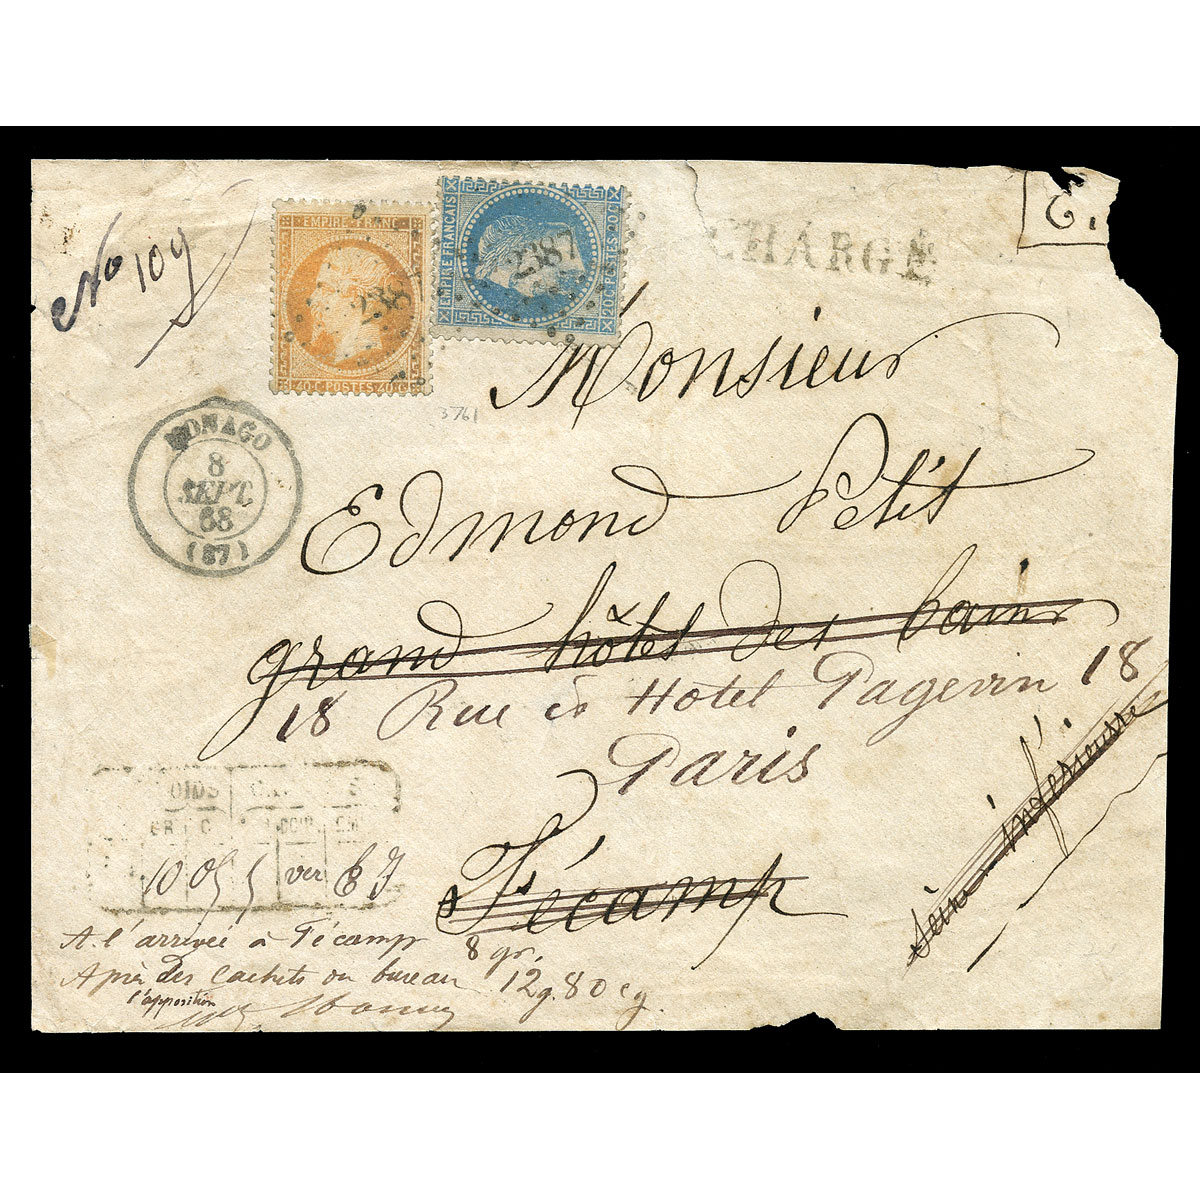 No 109
EMPIRE FRANC
40 C POSTES 40 C
238
EMPIRE FRANÇAIS
20C POSTES 20C
2387
CHARGÉ
3761
MONACO
8
SEPT.
68
(87)
Monsieur
Edmond Petit
grand hôtel des bains
18 Rue et Hotel Pagevin 18
Paris
Fécamp
Seine inférieure
OIDS
A l'arrivée à Fécamp 8 gr.
Après des Cachets du bureau 12g.80cg
l'apposition